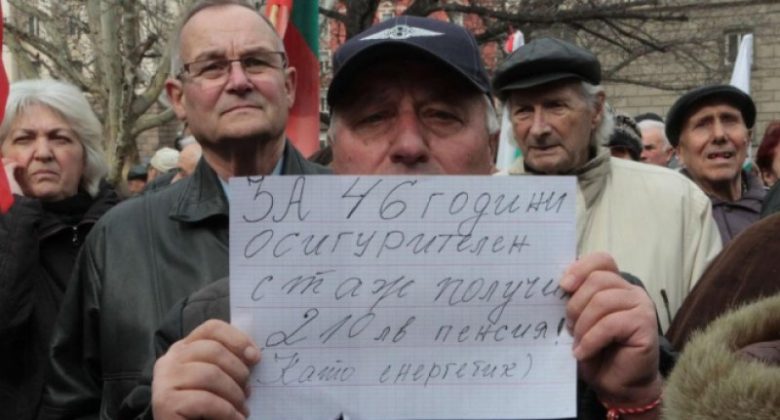 ЗА 46 години
осигурителен
стаж получих
210 лв пенсия!
Като енергетик)